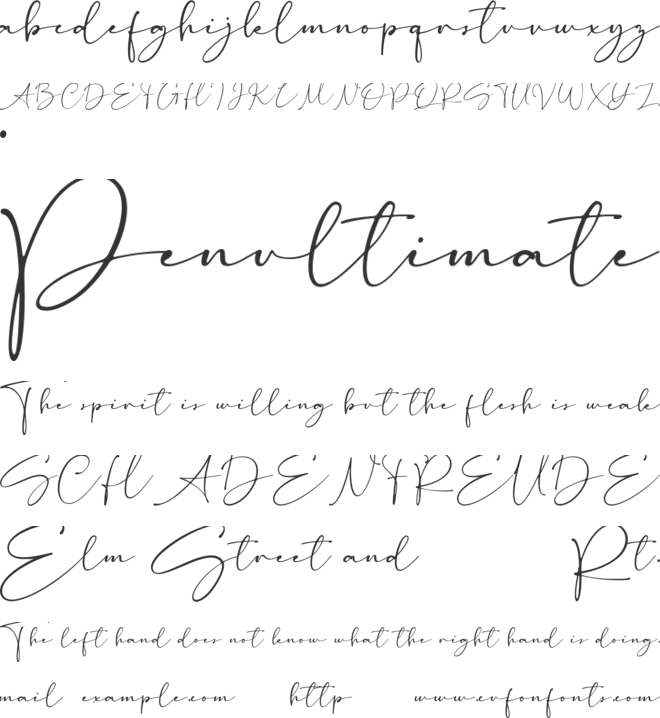 abcdefghijklmnopqrstuvwxyz
ABCDEFGHIJKLMNOPQRSTUVWXYZ
.
Penultimate
The spirit is willing but the flesh is weak
SCHADENFREUDE
Elm Street and Rt.
The left hand does not know what the right hand is doing.
mail example.com http www.cvfonfonts.com